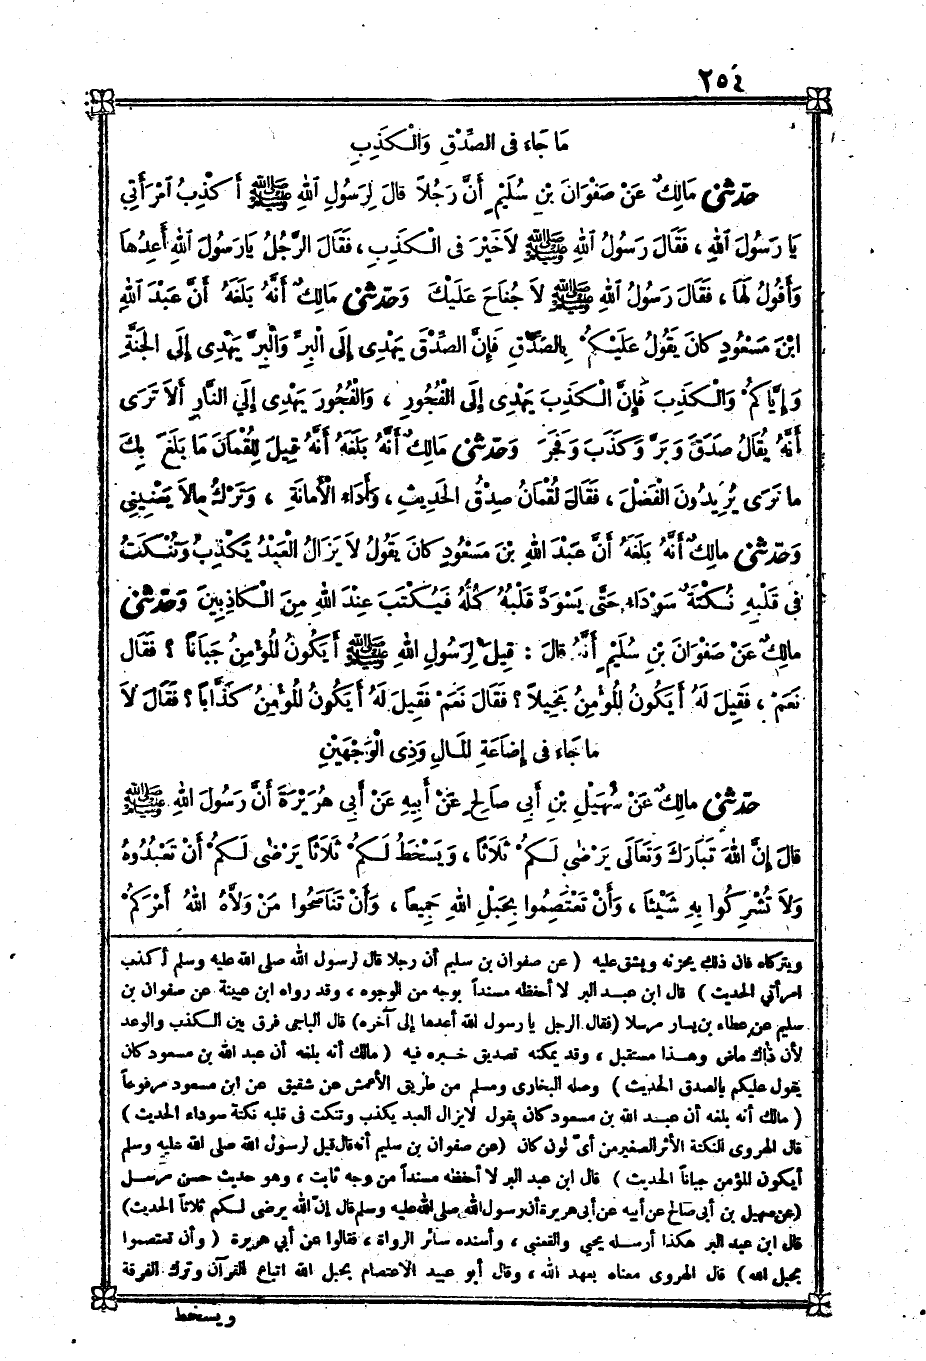 ٢٥٤
مَا جَاءَ فِى الصِّدْقِ وَالْكَذِبِ
حَدَّثَنِى مَالِكٌ عَنْ صَفْوَانَ بْنِ سُلَيْمٍ أَنَّ رَجُلاً قَالَ لِرَسُولِ اللهِ ﷺ أَكْذِبُ امْرَأَتِي
يَا رَسُولَ اللهِ ، فَقَالَ رَسُولُ اللهِ ﷺ لَا خَيْرَ فِى الْكَذِبِ ، فَقَالَ الرَّجُلُ يَا رَسُولَ اللهِ أَعِدُهَا
وَأَقُولُ لَهَا ، فَقَالَ رَسُولُ اللهِ ﷺ لَا جُنَاحَ عَلَيْكَ وَحَدَّثَنِى مَالِكٌ أَنَّهُ بَلَغَهُ أَنَّ عَبْدَ اللهِ
ابْنَ مَسْعُودٍ كَانَ يَقُولُ عَلَيْكُمْ بِالصِّدْقِ فَإِنَّ الصِّدْقَ يَهْدِى إِلَى الْبِرِّ وَالْبِرَّ يَهْدِى إِلَى الْجَنَّةِ
وَإِيَّاكُمْ وَالْكَذِبَ فَإِنَّ الْكَذِبَ يَهْدِى إِلَى الْفُجُورِ ، وَالْفُجُورَ يَهْدِى إِلَى النَّارِ أَلَا تَرَى
أَنَّهُ يُقَالُ صَدَقَ وَبَرَّ وَكَذَبَ وَفَجَرَ وَحَدَّثَنِى مَالِكٌ أَنَّهُ بَلَغَهُ أَنَّهُ قِيلَ لِلُقْمَانَ مَا بَلَغَ بِكَ
مَا نَرَى يُرِيدُونَ الْفَضْلَ ، فَقَالَ لُقْمَانُ صِدْقُ الْحَدِيثِ ، وَأَدَاءُ الْأَمَانَةِ ، وَتَرْكُ مَالاَ يَعْنِينِي
وَحَدَّثَنِى مَالِكٌ أَنَّهُ بَلَغَهُ أَنَّ عَبْدَ اللهِ بْنَ مَسْعُودٍ كَانَ يَقُولُ لَا يَزَالُ الْعَبْدُ يَكْذِبُ وَتُنْكَتُ
فِى قَلْبِهِ نُكْتَةٌ سَوْدَاءُ حَتَّى يَسْوَدَّ قَلْبُهُ كُلُّهُ فَيُكْتَبَ عِنْدَ اللهِ مِنَ الْكَاذِبِينَ وَحَدَّثَنِى
مَالِكٌ عَنْ صَفْوَانَ بْنِ سُلَيْمٍ أَنَّهُ قَالَ : قِيلَ لِرَسُولِ اللهِ ﷺ أَيَكُونُ الْمُؤْمِنُ جَبَانًا ؟ فَقَالَ
نَعَمْ ، فَقِيلَ لَهُ أَيَكُونُ الْمُؤْمِنُ بَخِيلاً ؟ فَقَالَ نَعَمْ فَقِيلَ لَهُ أَيَكُونُ الْمُؤْمِنُ كَذَّابًا ؟ فَقَالَ لَا
مَا جَاءَ فِى إِضَاعَةِ الْمَالِ وَذِى الْوَجْهَيْنِ
حَدَّثَنِى مَالِكٌ عَنْ سُهَيْلِ بْنِ أَبِي صَالِحٍ عَنْ أَبِيهِ عَنْ أَبِي هُرَيْرَةَ أَنَّ رَسُولَ اللهِ ﷺ
قَالَ إِنَّ اللهَ تَبَارَكَ وَتَعَالَى يَرْضَى لَكُمْ ثَلَاثًا ، وَيَسْخَطُ لَكُمْ ثَلَاثًا يَرْضَى لَكُمْ أَنْ تَعْبُدُوهُ
وَلَا تُشْرِكُوا بِهِ شَيْئًا ، وَأَنْ تَعْتَصِمُوا بِحَبْلِ اللهِ جَمِيعًا ، وَأَنْ تَنَاصَحُوا مَنْ وَلَّاهُ اللهُ أَمْرَكُمْ
ويتركاه فان ذلك يحزنه ويشق عليه ( عن صفوان بن سليم أن رجلا قال لرسول الله صلى الله عليه وسلم أكذب
امرأتي الحديث ) قال ابن عبد البر لا أحفظه مسنداً بوجه من الوجوه ، وقد رواه ابن عيينة عن صفوان بن
سليم عن عطاء بن يسار مرسلا (فقال الرجل يا رسول الله أعدها إلى آخره) قال الباجى فرق بين الكذب والوعد
لأن ذاك ماض وهذا مستقبل ، وقد يمكنه تصديق خبره فيه ( مالك أنه بلغه أن عبد الله بن مسعود كان
يقول عليكم بالصدق الحديث ) وصله البخارى ومسلم من طريق الأعمش عن شقيق عن ابن مسعود مرفوعاً
( مالك أنه بلغه أن عبد الله بن مسعود كان يقول لايزال العبد يكذب وتنكت فى قلبه نكتة سوداء الحديث )
قال الهروى النكتة الأثر الصغير من أى لون كان (عن صفوان بن سليم أنه قال قيل لرسول الله صلى الله عليه وسلم
أيكون المؤمن جباناً الحديث ) قال ابن عبد البر لا أحفظه مسنداً من وجه ثابت ، وهو حديث حسن مرسل
(عن سهيل بن أبى صالح عن أبيه عن أبى هريرة أن رسول الله صلى الله عليه وسلم قال إن الله يرضى لكم ثلاثاً الحديث)
قال ابن عبد البر هكذا أرسله يحيى والقعنبى ، وأسنده سائر الرواة ، فقالوا عن أبي هريرة ( وأن تعتصموا
بحبل الله ) قال الهروى معناه بعهد الله ، وقال أبو عبيد الاعتصام بحبل الله اتباع القرآن وترك الفرقة
ويسخط